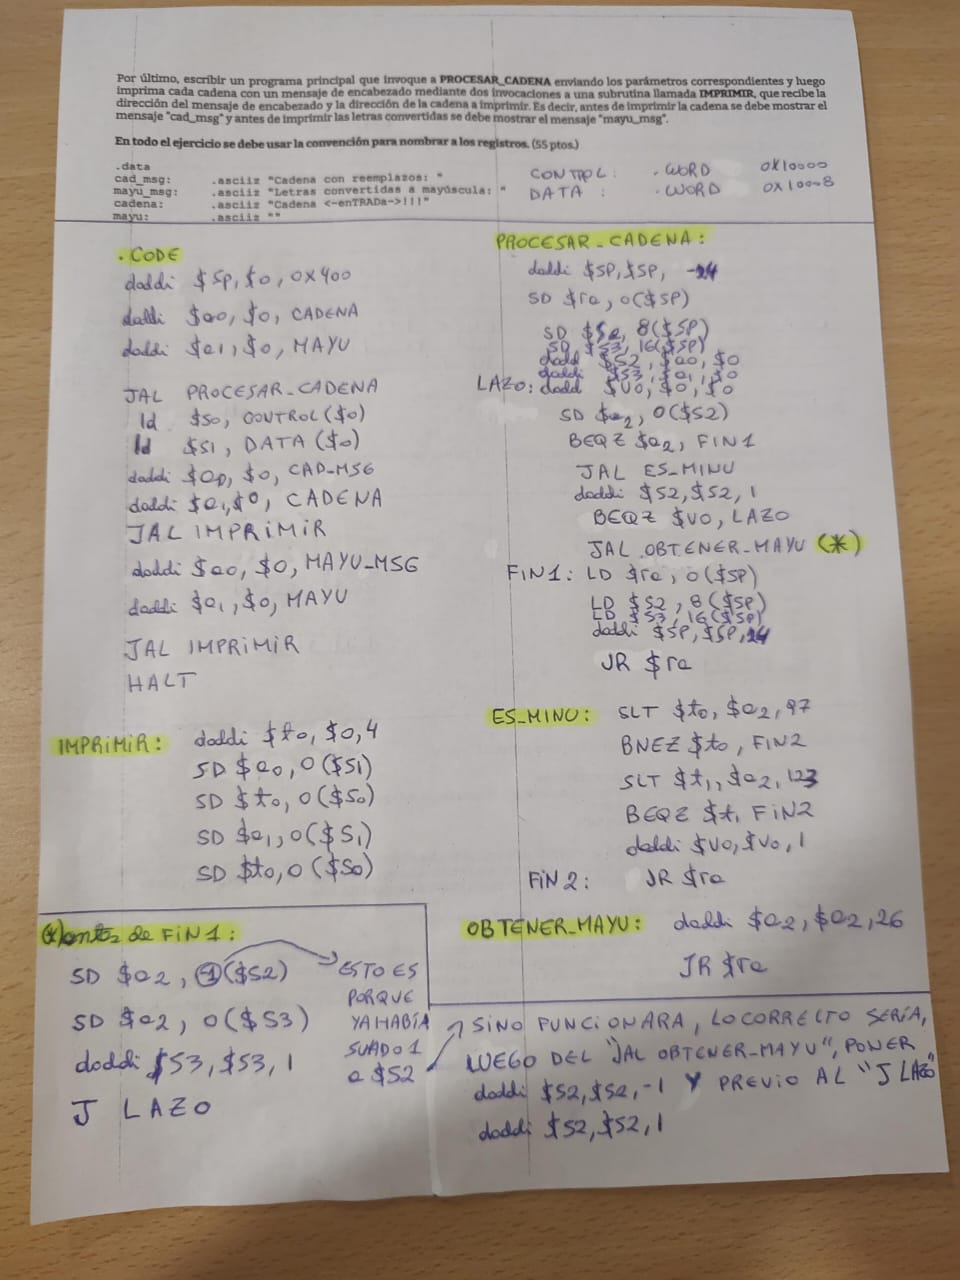 Por último, escribir un programa principal que invoque a PROCESAR_CADENA enviando los parámetros correspondientes y luego
imprima cada cadena con un mensaje de encabezado mediante dos invocaciones a una subrutina llamada IMPRIMIR, que recibe la
dirección del mensaje de encabezado y la dirección de la cadena a imprimir. Es decir, antes de imprimir la cadena se debe mostrar el
mensaje "cad_msg" y antes de imprimir las letras convertidas se debe mostrar el mensaje "mayu_msg".
En todo el ejercicio se debe usar la convención para nombrar a los registros. (55 ptos.)
.data
cad_msg: .asciiz "Cadena con reemplazos: "
mayu_msg: .asciiz "Letras convertidas a mayúscula: "
cadena: .asciiz "Cadena <-enTRADa->!!!"
mayu: .asciiz ""
CONTROL: .WORD 0X10000
DATA: .WORD 0X10008
.CODE
daddi $SP, $0, 0X400
daddi $a0, $0, CADENA
daddi $a1, $0, MAYU
JAL PROCESAR_CADENA
ld $S0, CONTROL($0)
ld $S1, DATA ($0)
daddi $a0, $0, CAD_MSG
daddi $a1, $0, CADENA
JAL IMPRIMIR
daddi $a0, $0, MAYU_MSG
daddi $a1, $0, MAYU
JAL IMPRIMIR
HALT
IMPRIMIR: daddi $t0, $0, 4
SD $a0, 0($S1)
SD $t0, 0($S0)
SD $a1, 0($S1)
SD $t0, 0($S0)
PROCESAR_CADENA:
daddi $SP, $SP, -24
SD $ra, 0($SP)
SD $S2, 8($SP)
SD $S3, 16($SP)
dadd $S2, $a0, $0
daddi $S3, $a1, $0
LAZO: dadd $V0, $0, $0
SD $a2, 0($S2)
BEQZ $a2, FIN1
JAL ES_MINU
daddi $S2, $S2, 1
BEQZ $V0, LAZO
JAL OBTENER_MAYU (*)
FIN1: LD $ra, 0($SP)
LD $S2, 8($SP)
LD $S3, 16($SP)
daddi $SP, $SP, 24
JR $ra
ES_MINU: SLT $t0, $a2, 97
BNEZ $t0, FIN2
SLT $t1, $a2, 123
BEQZ $t1 FIN2
daddi $V0, $V0, 1
FIN2: JR $ra
OBTENER_MAYU: daddi $a2, $a2, 26
JR $ra
(*) antes de FIN1:
SD $a2, -1($S2)
SD $a2, 0($S3)
daddi $S3, $S3, 1
J LAZO
ESTO ES
PORQUE
YA HABÍA
SUADO 1
a $S2
SINO FUNCIONARA, LO CORRECTO SERÍA,
LUEGO DEL "JAL OBTENER_MAYU", PONER
daddi $S2, $S2, -1 Y PREVIO AL "J LAZO"
daddi $S2, $S2, 1